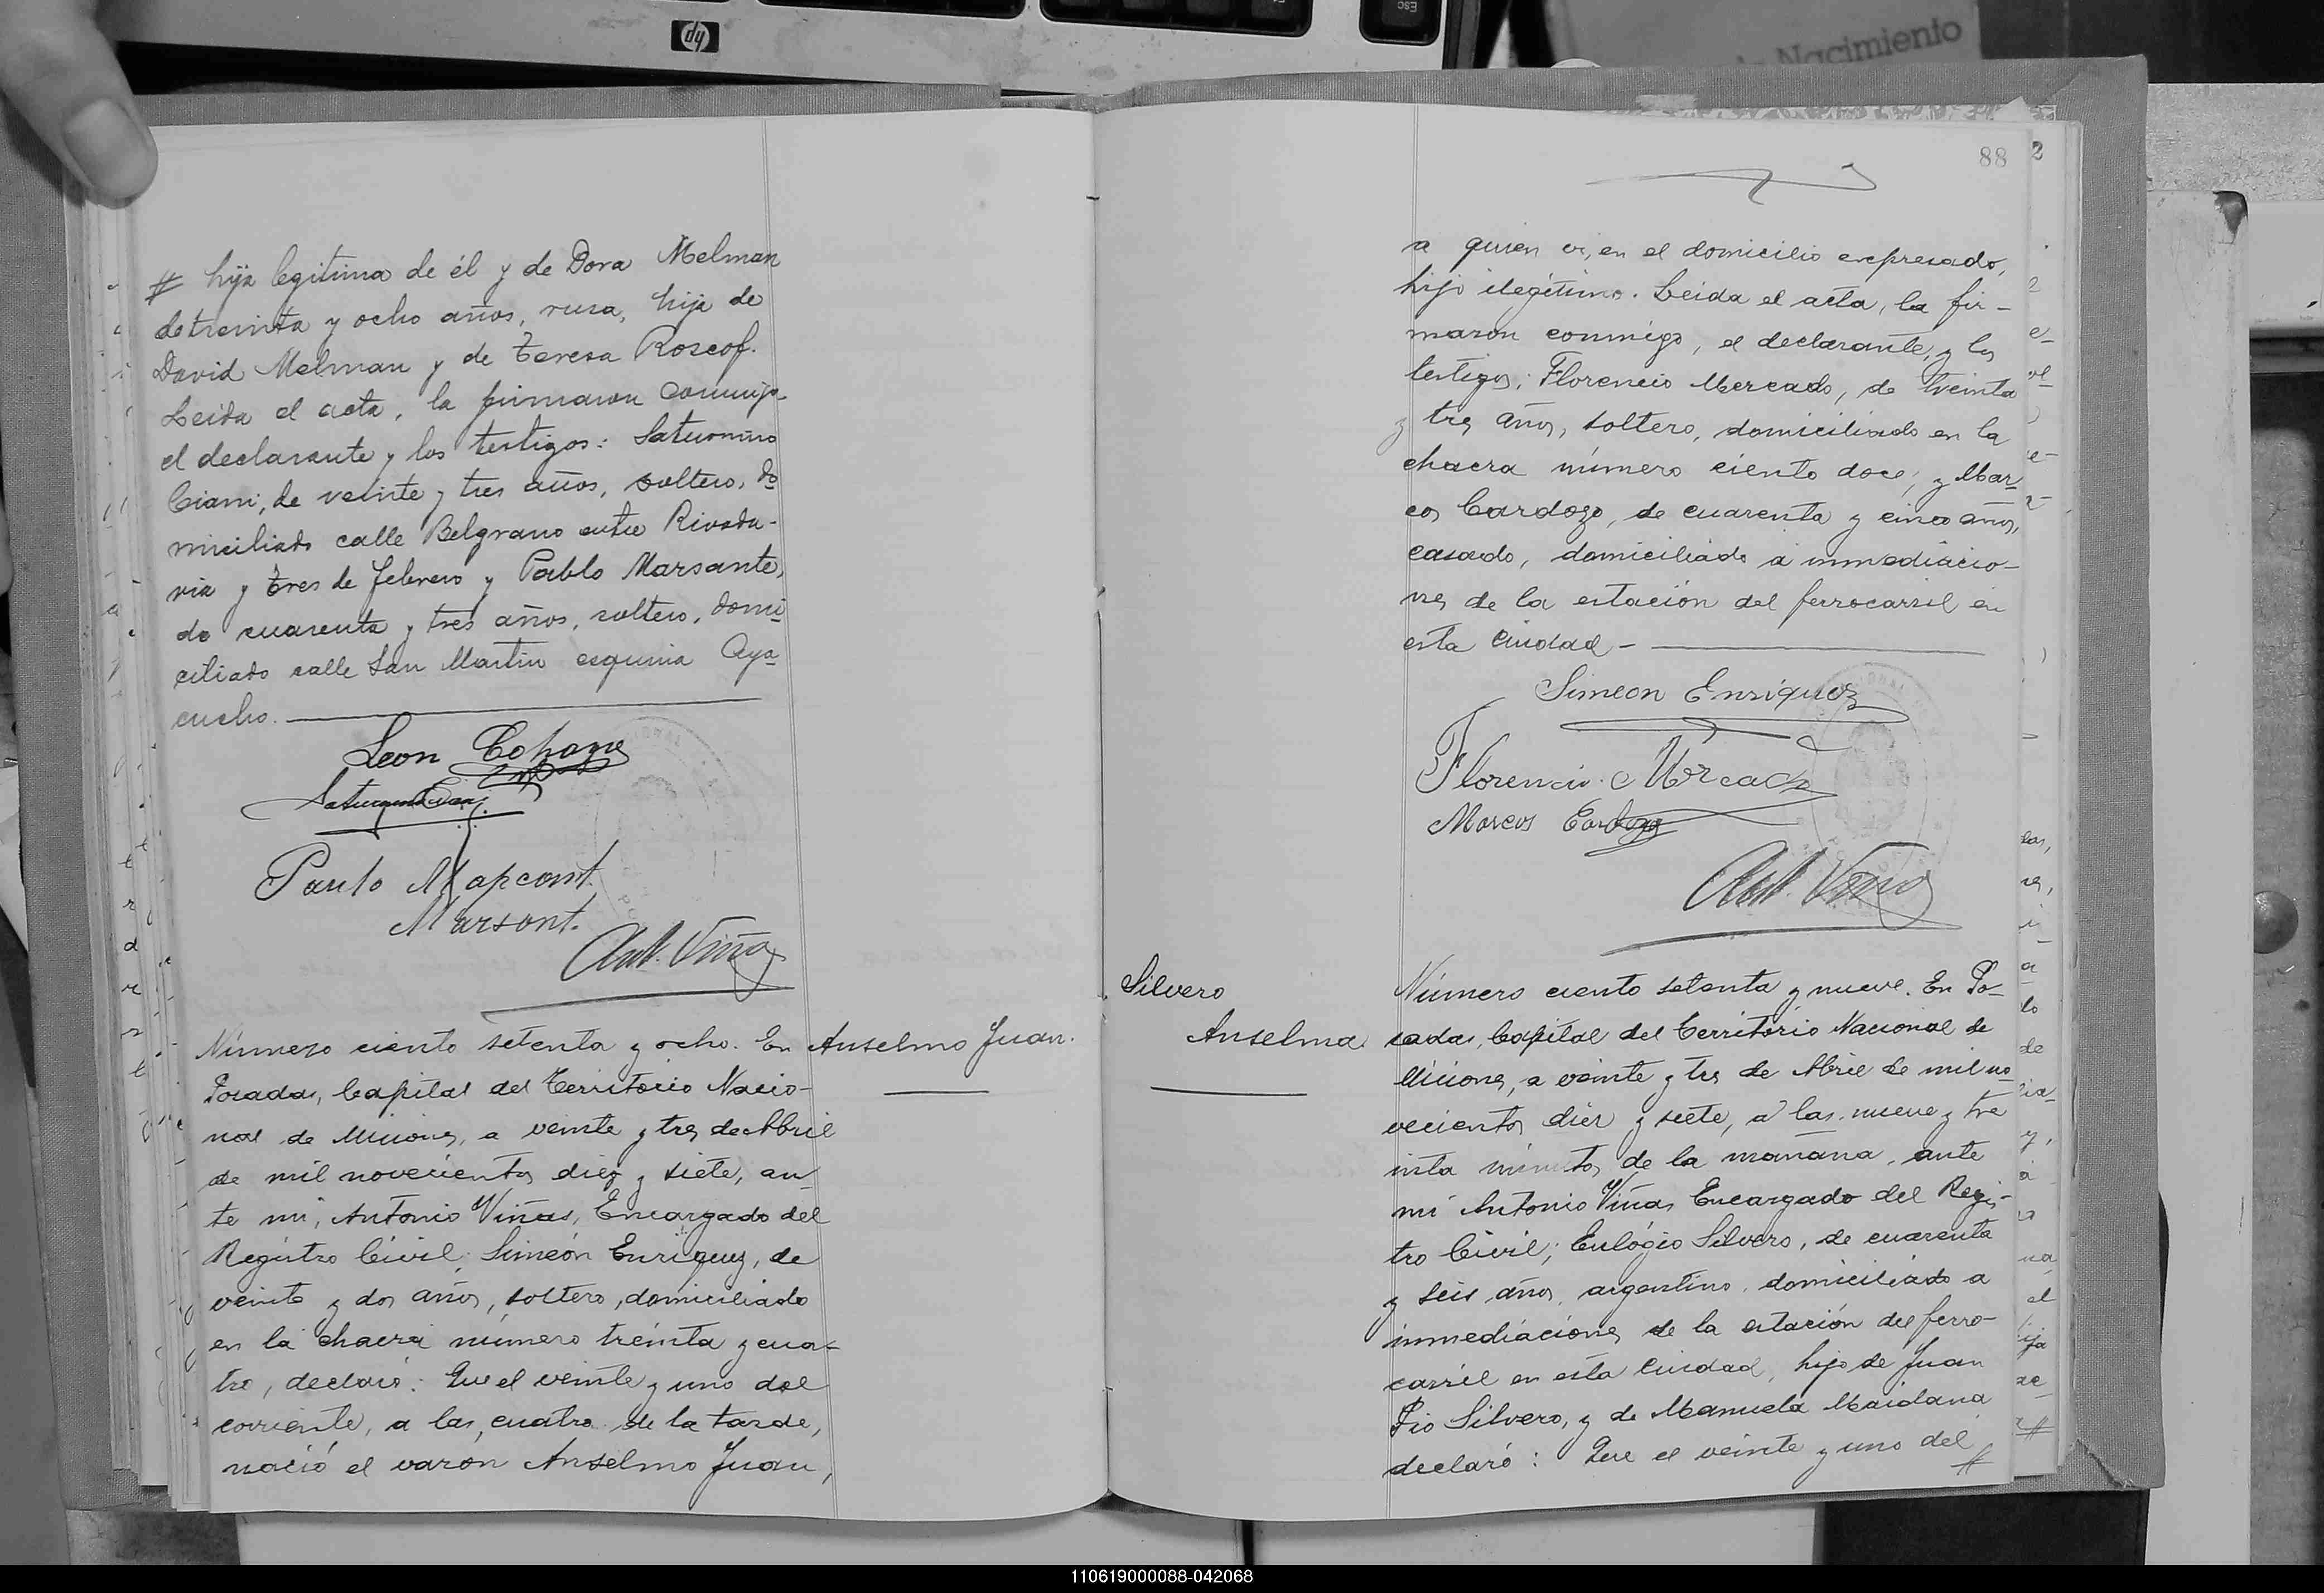 hp
ESC
Nacimiento
# hija legitima de él y de Dora Melman
de treinta y ocho años, rusa, hija de
David Melman y de Teresa Roseof.
Leida el acta, la firmaron conmigo
el declarante y los testigos: Saturnino
Ciani, de veinte y tres años, soltero, do
miciliado calle Belgrano entre Rivada-
via y tres de febrero y Pablo Marsante,
de cuarenta y tres años, soltero, domi
ciliado calle San Martin esquina Aya
cucho.
Leon
Marsont.
Ant. Viñas
Número ciento setenta y ocho. En
Posadas, Capital del Territorio Nacio-
nal de Misiones, a veinte y tres de Abril
de mil novecientos diez y siete, an
te mi, Antonio Viñas, Encargado del
Registro Civil; Simeón Enriquez, de
veinte y dos años, soltero, domiciliado
en la chacra número treinta y cua-
tro, declaró: Que el veinte y uno del
corriente, a las cuatro de la tarde,
nació el varon Anselmo Juan,
Anselmo Juan.
88
2
a quien vi, en el domicilio expresado,
hijo ilegítimo. Leida el acta, la fir-
maron conmigo, el declarante, y los
testigos; Florencio Mercado, de treinta
y tres años, soltero, domiciliado en la
chacra número ciento doce, y Mar-
cos Cardozo, de cuarenta y cinco años,
casado, domiciliado a inmediacio-
nes de la estación del ferrocarril en
esta ciudad -
Simeon Enriquez
Florencio Mercado
Marcos Cardozo
Ant. Viñas
Silvero
Anselma.
Número ciento setenta y nueve. En Po-
sadas, Capital del Territorio Nacional de
Misiones, a veinte y tres de Abril de mil no
vecientos diez y siete, a las nueve y tre
inta minutos de la mañana, ante
mi Antonio Viñas Encargado del Regis-
tro Civil; Eulógio Silvero, de cuarenta
y seis años, argentino, domiciliado a
inmediaciones de la estación del ferro-
carril en esta ciudad, hijo de Juan
Pio Silvero, y de Manuela Maidana
declaró: Que el veinte y uno del
#
110619000088-042068